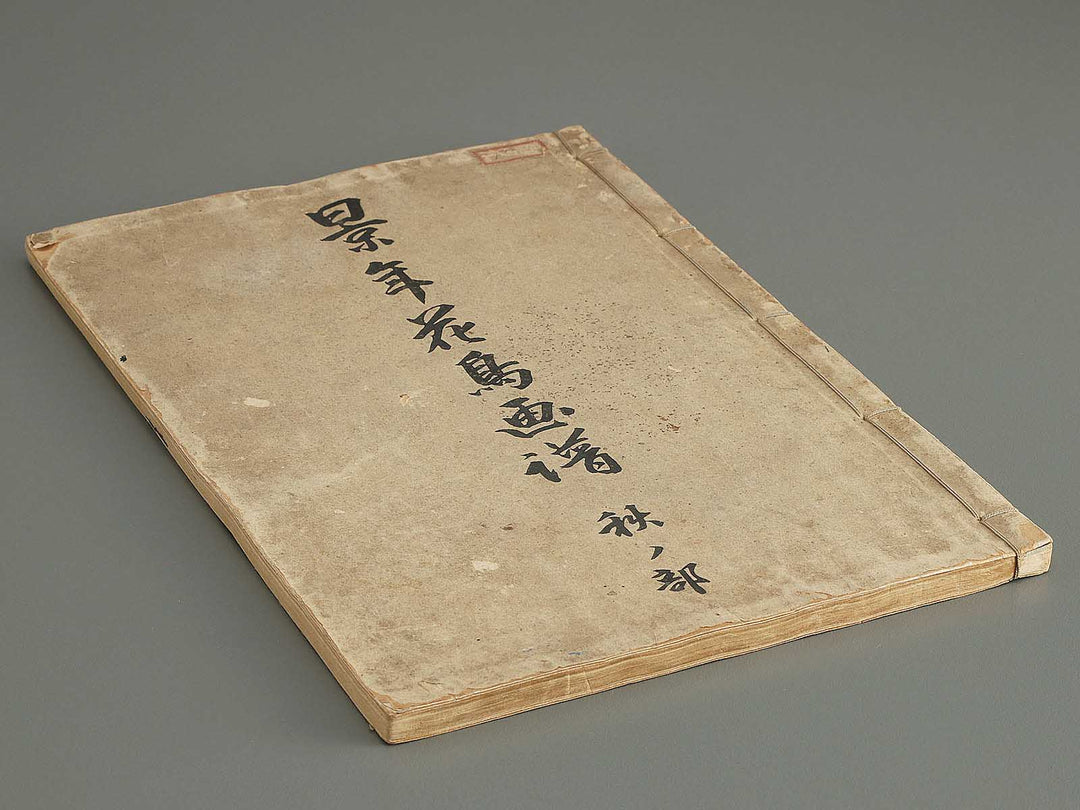 景年花鳥画譜 秋ノ部